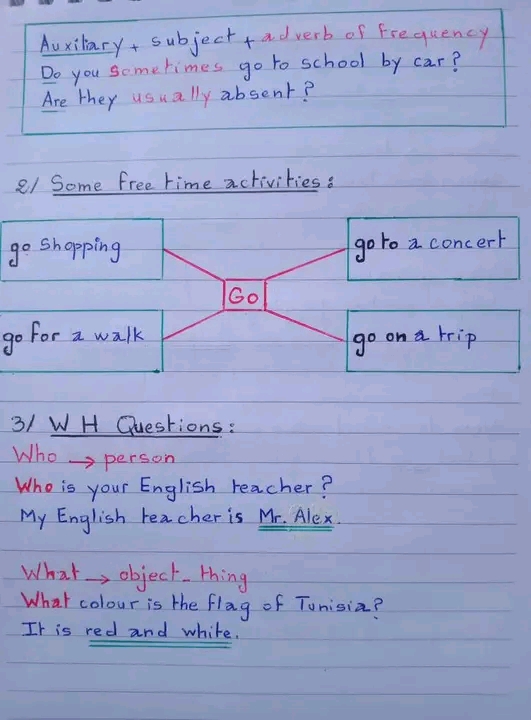 Auxiliary + subject + adverb of frequency
Do you sometimes go to school by car?
Are they usually absent?
2/ Some free time activities:
go shopping
go to a concert
Go
go for a walk
go on a trip
3/ W H Questions:
Who → person
Who is your English teacher?
My English teacher is Mr. Alex.
What → object - thing
What colour is the flag of Tunisia?
It is red and white.